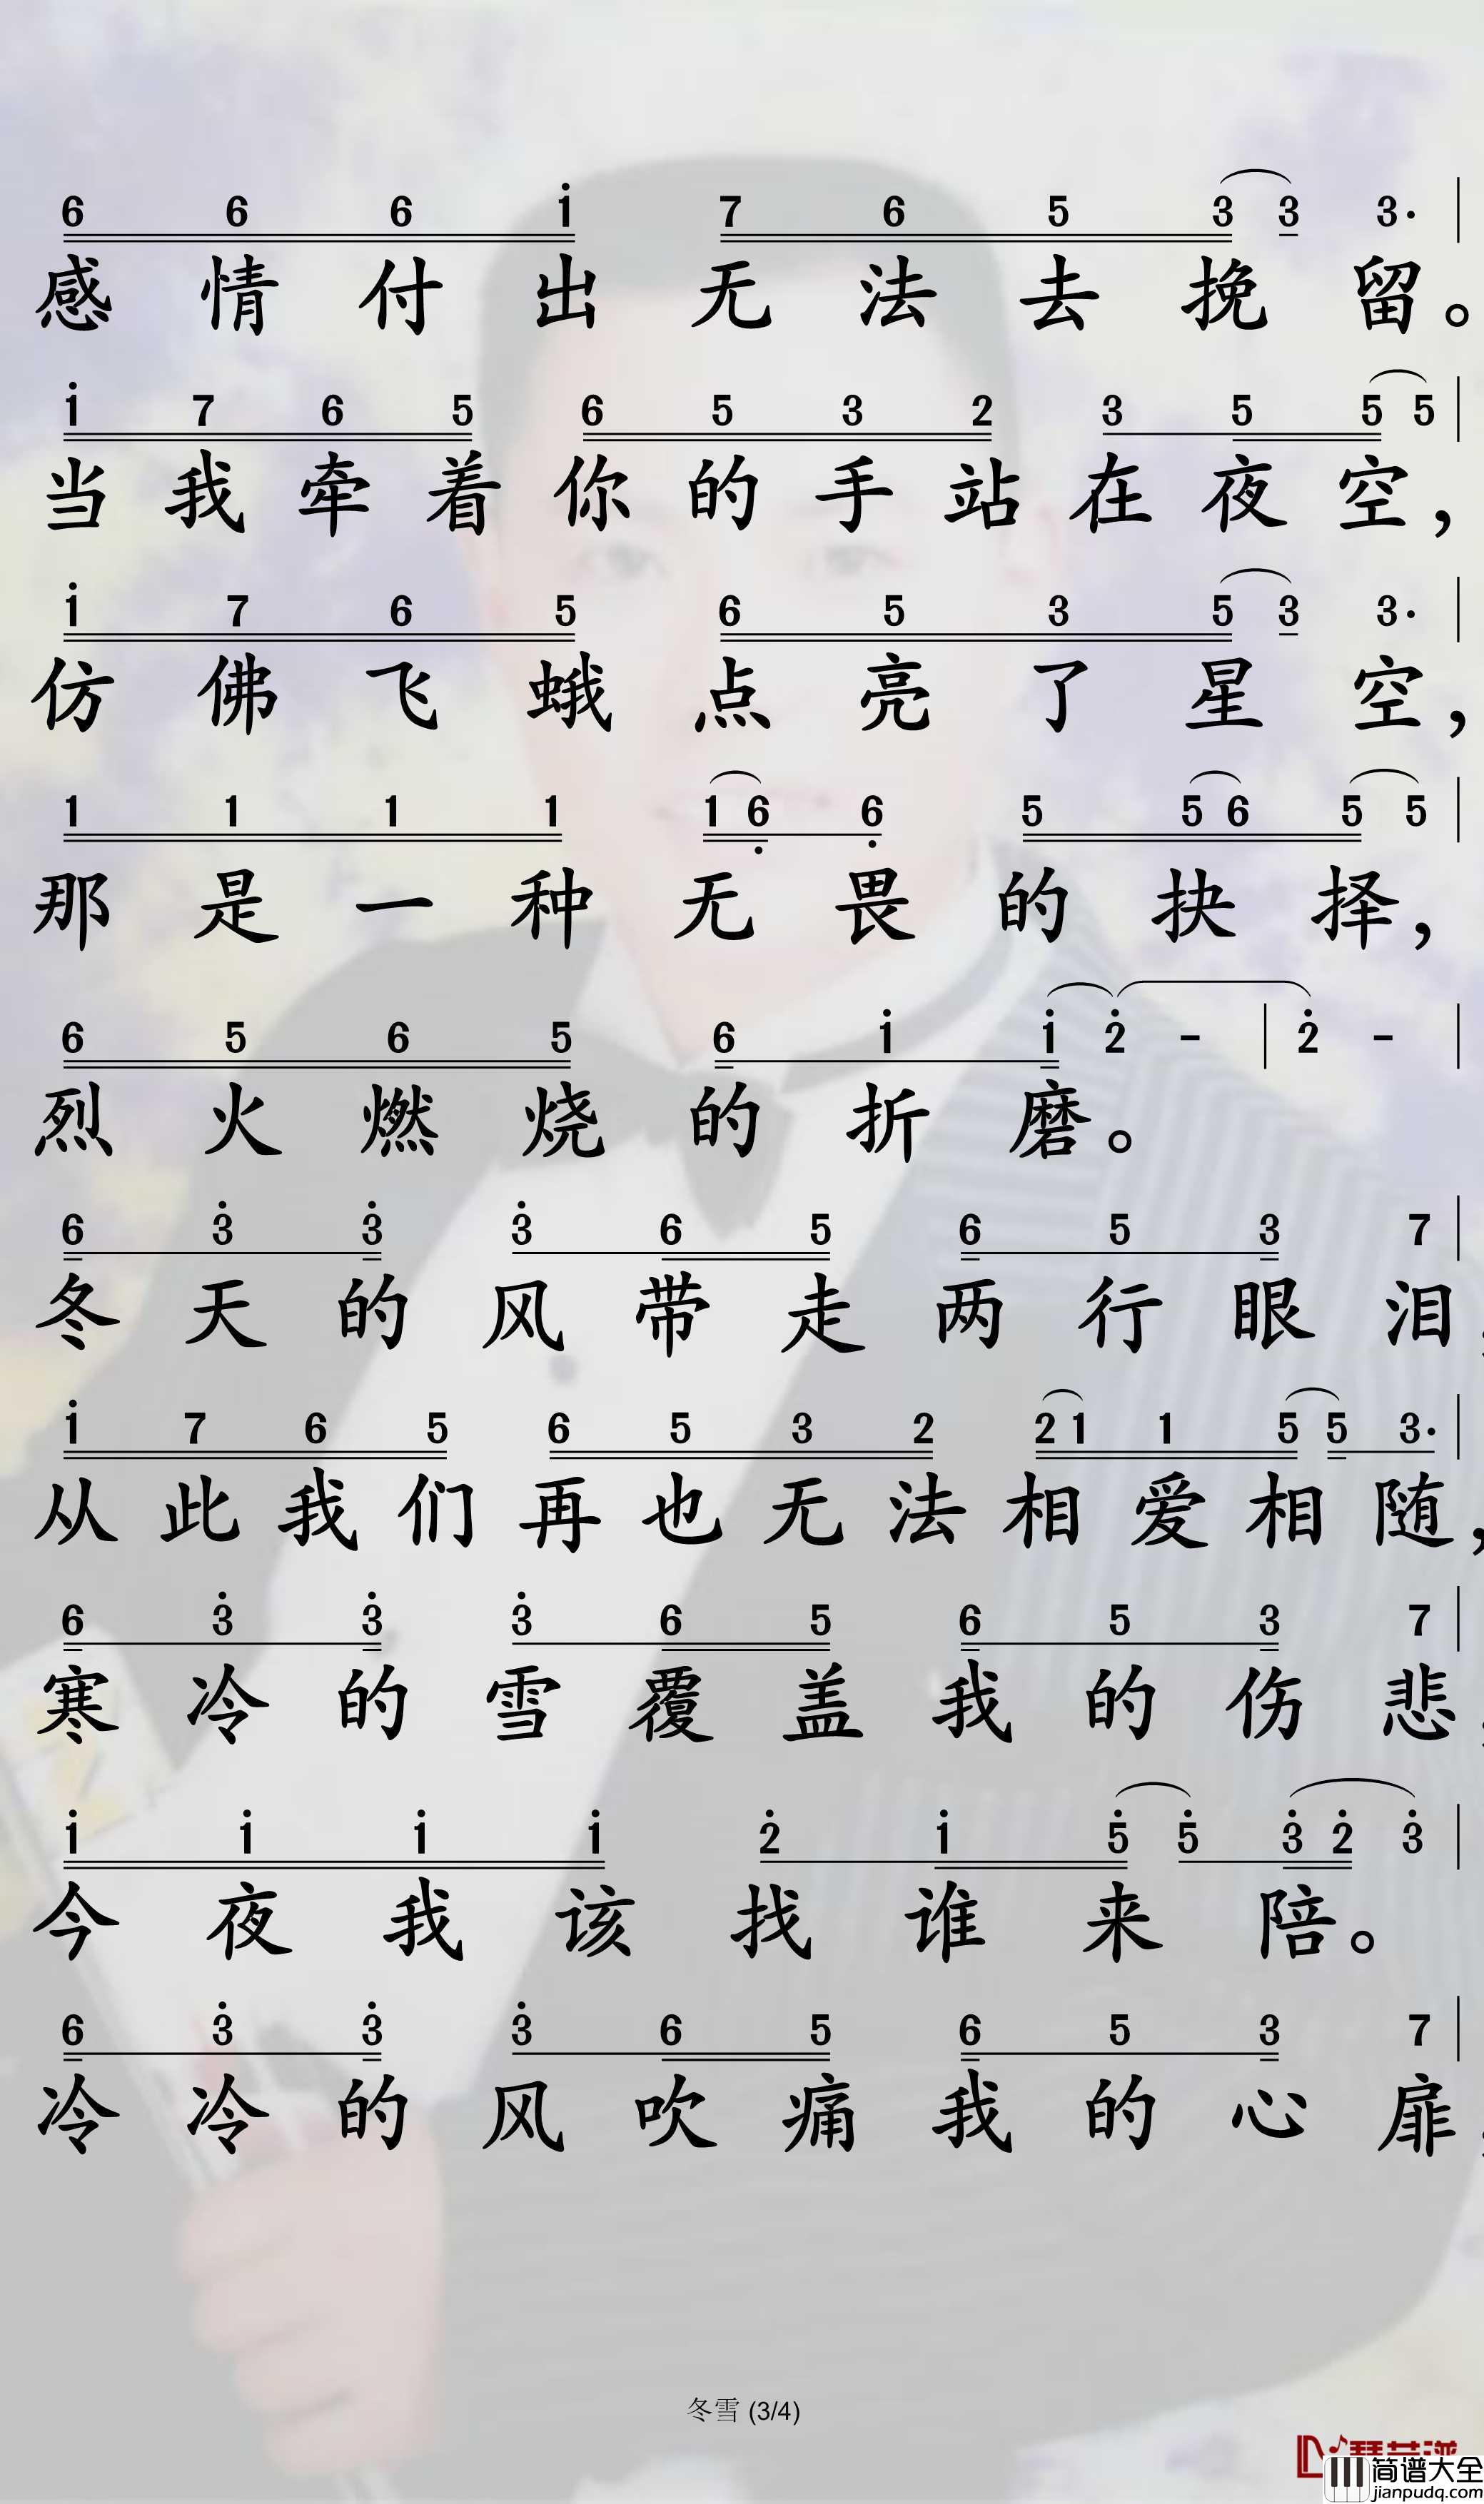 6 6 6 i 7 6 5 3 3 3·
感情付出无法去挽留。
i 7 6 5 6 5 3 2 3 5 5 5
当我牵着你的手站在夜空，
i 7 6 5 6 5 3 5 3 3·
仿佛飞蛾点亮了星空，
1 1 1 1 1 6 6 5 5 6 5 5
那是一种无畏的抉择，
6 5 6 5 6 i i 2 - 2 -
烈火燃烧的折磨。
6 3 3 3 6 5 6 5 3 7
冬天的风带走两行眼泪，
i 7 6 5 6 5 3 2 2 1 1 5 5 3·
从此我们再也无法相爱相随，
6 3 3 3 6 5 6 5 3 7
寒冷的雪覆盖我的伤悲，
i i i i 2 i 5 5 3 2 3
今夜我该找谁来陪。
6 3 3 3 6 5 6 5 3 7
冷冷的风吹痛我的心扉，
冬雪 (3/4)
简谱大全
jianpudq.com